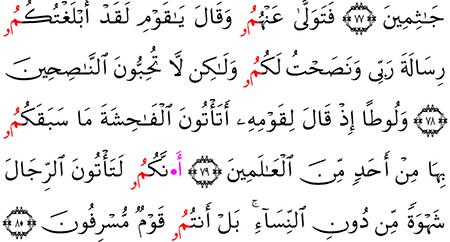 جَٰثِمِينَ ٧٧ فَتَوَلَّىٰ عَنْهُمُۥ وَقَالَ يَٰقَوْمِ لَقَدْ أَبْلَغْتُكُمُۥ
رِسَالَةَ رَبِّى وَنَصَحْتُ لَكُمُۥ وَلَٰكِن لَّا تُحِبُّونَ اَلنَّٰصِحِينَ
٧٨ وَلُوطًا إِذْ قَالَ لِقَوْمِهِۦ أَتَأْتُونَ اَلْفَٰحِشَةَ مَا سَبَقَكُمُۥ
بِهَا مِنْ أَحَدٍ مِّنَ اَلْعَٰلَمِينَ ٧٩ أَ•نَّكُمُۥ لَتَأْتُونَ اَلرِّجَالَ
شَهْوَةً مِّن دُونِ اِلنِّسَآءِۚ بَلْ أَنتُمُۥ قَوْمٌ مُّسْرِفُونَ ٨٠